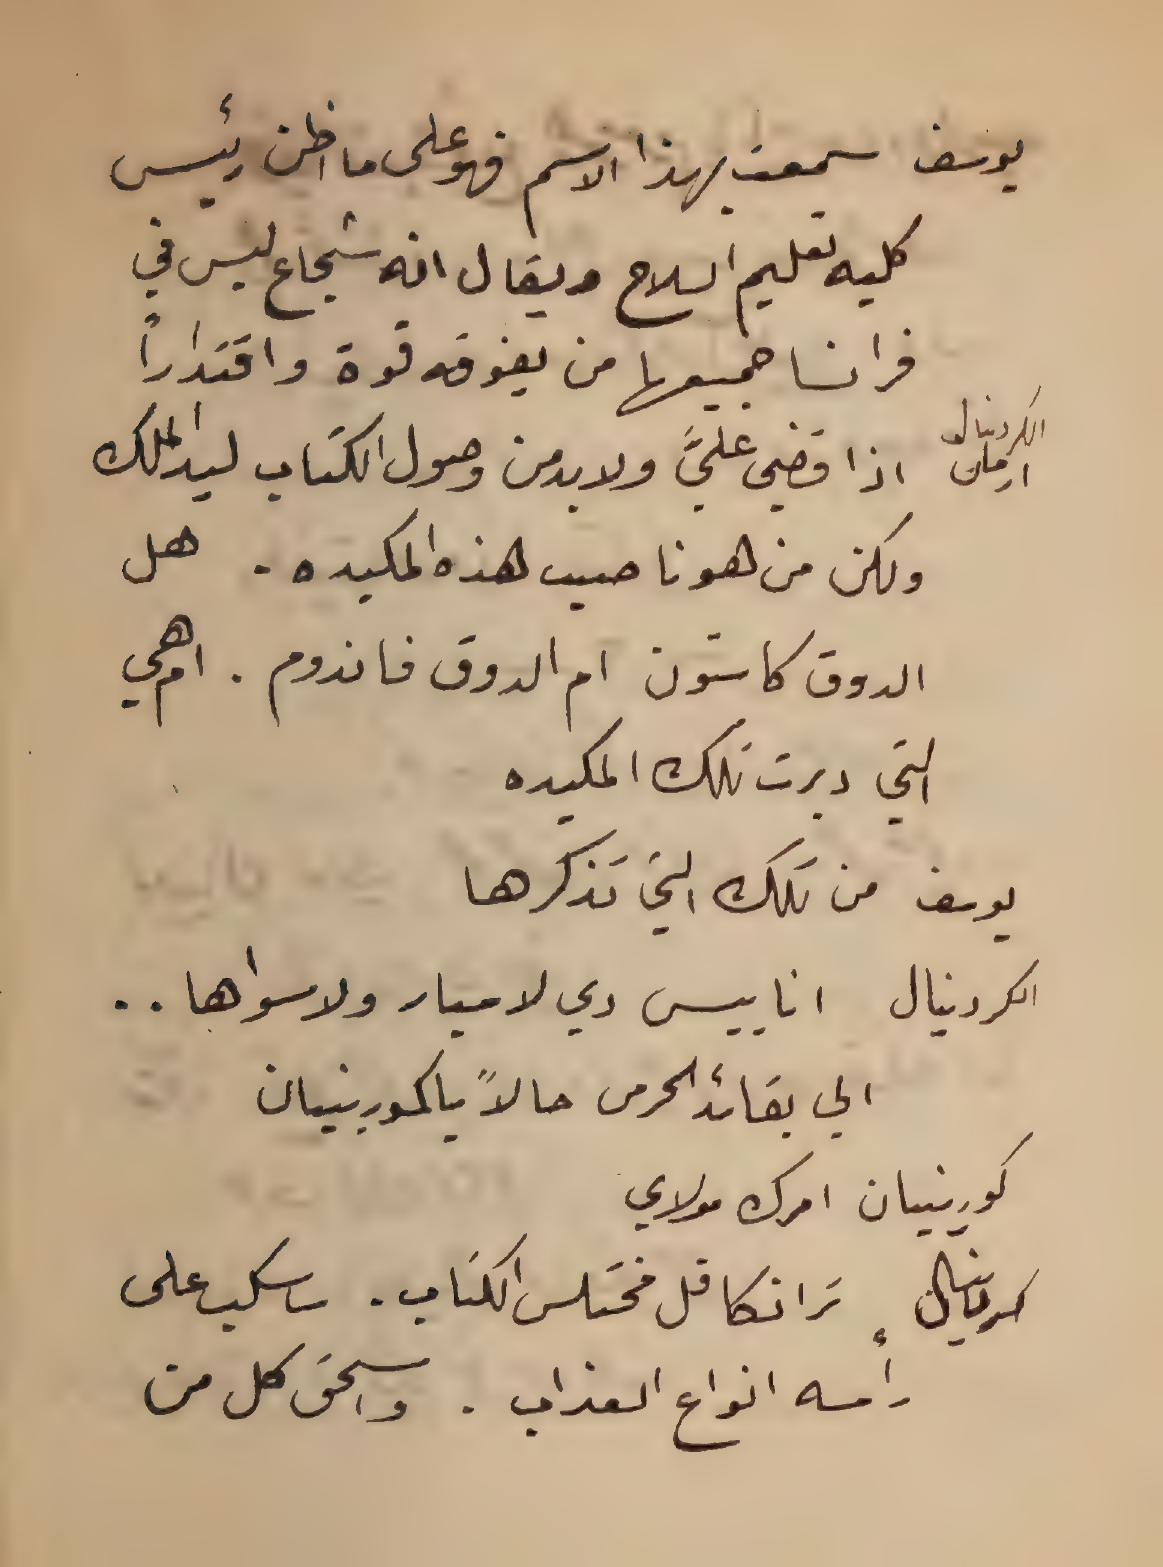 يوسف سمعت بهذا الاسم فهو على ما اظن رئيس
كليه تعليم السلاح ويقال انه شجاع ليس في
فرانسا جميعها من يفوقه قوة واقتداراً
الكردينال ارمان اذا قضي عليَّ ولا بد من وصول الكتاب ليد الملك
ولكن من هو ناصب هذه المكيده . هل
الدوق كاستون ام الدوق فاندوم . ام هي
التي دبرت تلك المكيده
يوسف من تلك التي تذكرها
الكردينال انا بيس دي لاميار ولا سواها ..
الي بقائد الحرس حالاً يا كورينيان
كورينيان امرك مولاي
كردينال ترانكافل مختلس الكتاب . ساسكب على
رأسه انواع العذاب . واسحق كل من